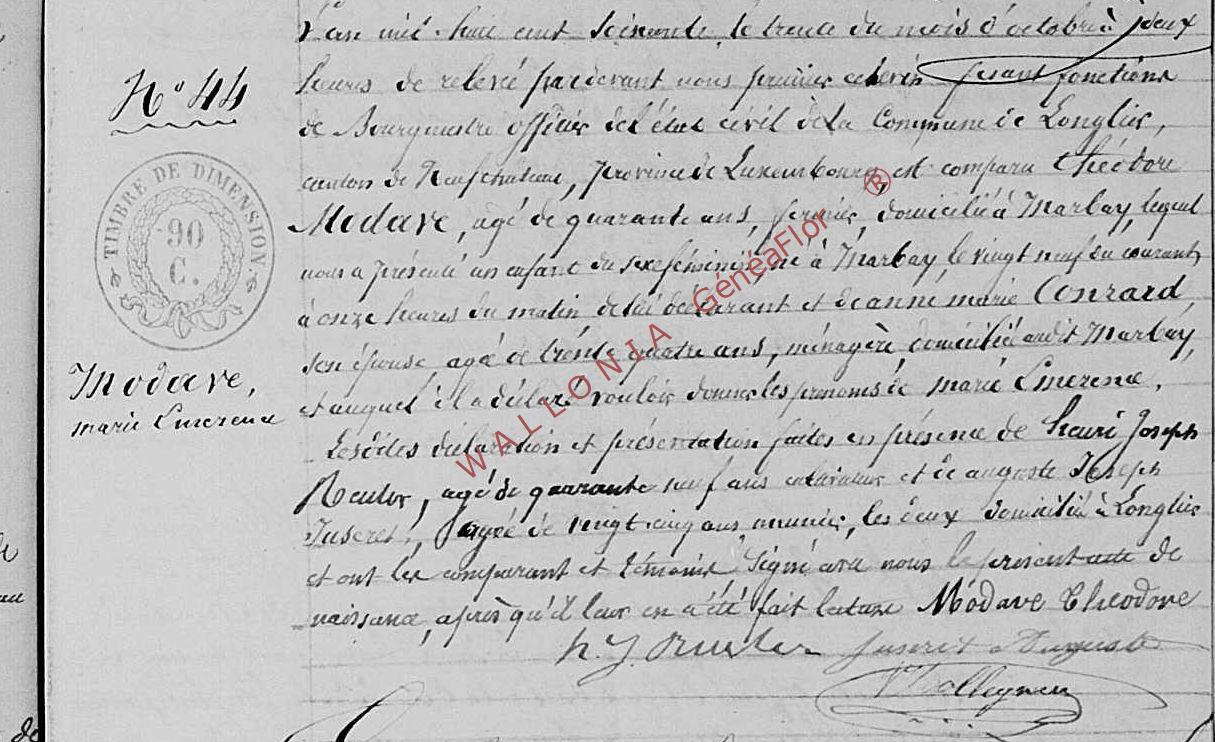 L'an mil huit cent soixante le trente du mois d'octobre à deux
heures de relevé pardevant nous premier echevin fesant fonctions
de Bourgmestre officier de l'état civil de la Commune de Longlier,
canton de Neufchateau, province de Luxembourg, est comparu théodore
Modave, agé de quarante ans, fermier, domicilié à Marbay, lequel
nous a présenté un enfant du sexe féminin né à Marbay, le vingt neuf du courant,
à onze heures du matin de lui déclarant et de anne marie Conrard
son épouse agée de trente quatre ans, ménagère, domiciliée audit Marbay,
et auquel il a déclaré vouloir donner les prénoms de marie Emerence,
Lesdites déclaration et présentation faites en présence de henri Joseph
Reuler, agé de quarante neuf ans cultivateur et de auguste Joseph
Juseret, agée de vingt cinq ans, meunier, les deux domiciliés à Longlier
et ont les comparant et témoins signé avec nous le présent acte de
naissance, après qu'il leur en a été fait lecture Modave Théodore
h. J. Reuler Juseret Auguste
N° 44
TIMBRE DE DIMENSION.
90
C.
Modave,
marie Emerence
WALLONIA GénéaFlor ®
de